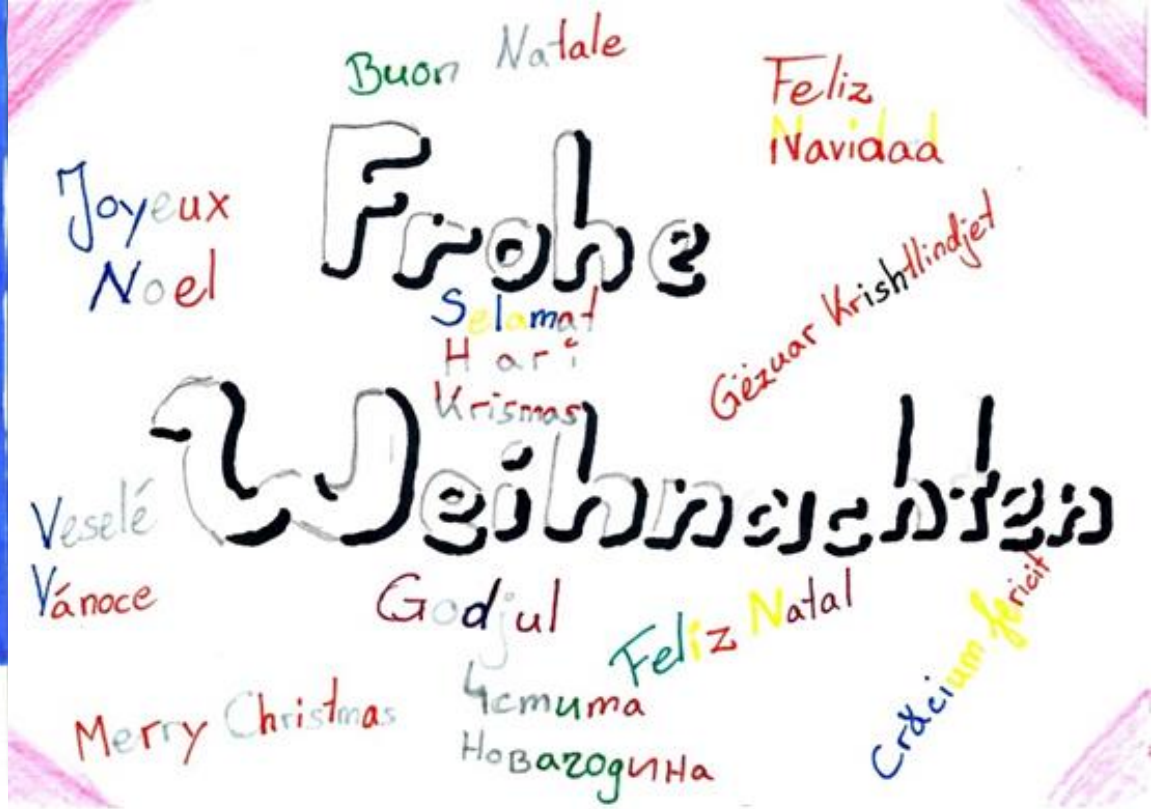 Buon Natale
Feliz
Navidad
Joyeux
Noel
Frohe
Selamat
Hari
Krismas
Gëzuar Krishtlindjet
Weihnachten
Veselé
Vánoce
Godjul
Feliz Natal
Crăcium fericit
Merry Christmas
Чстита
Новагодина